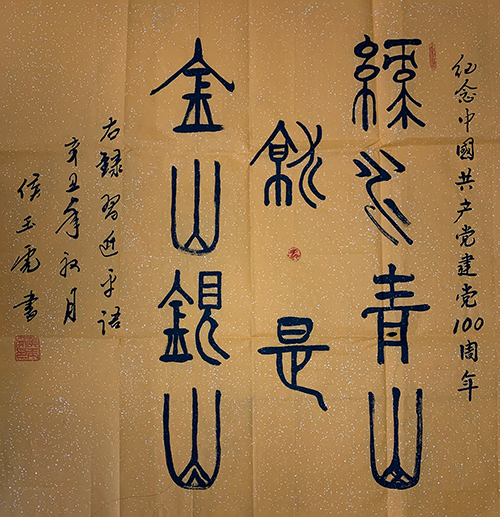 纪念中國共产党建党100周年
绿水青山
就是
金山銀山
右録習近平语
辛丑年
月
侯玉虎書